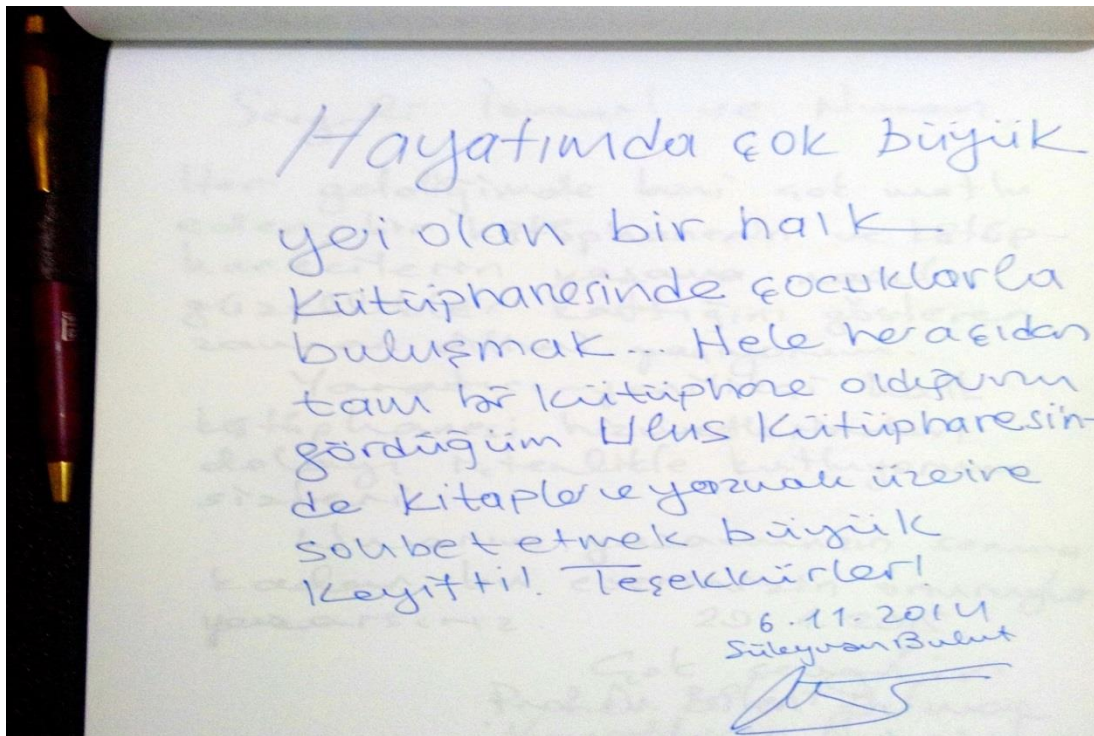 Hayatımda çok büyük
yei olan bir halk
kütüphanesinde çocuklarla
buluşmak... Hele her açıdan
tam bir kütüphane olduğunu
gördüğüm Ulus Kütüphanesin-
de kitaplar ve yazmak üzerine
sohbet etmek büyük
keyifti! Teşekkürler!
6.11.2014
Süleyman Bulut